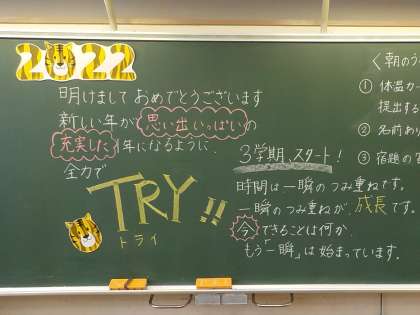 2022
明けまして おめでとうございます
新しい年が 思い出いっぱいの
充実した1年になるように、
全力で
TRY!!
トライ
3学期、スタート!
時間は一瞬のつみ重ねです。
一瞬のつみ重ねが、成長です。
今できることは何か
もう「一瞬」は始まっています。
<朝の
① 体温カー
提出する
② 名前あ
③ 宿題の